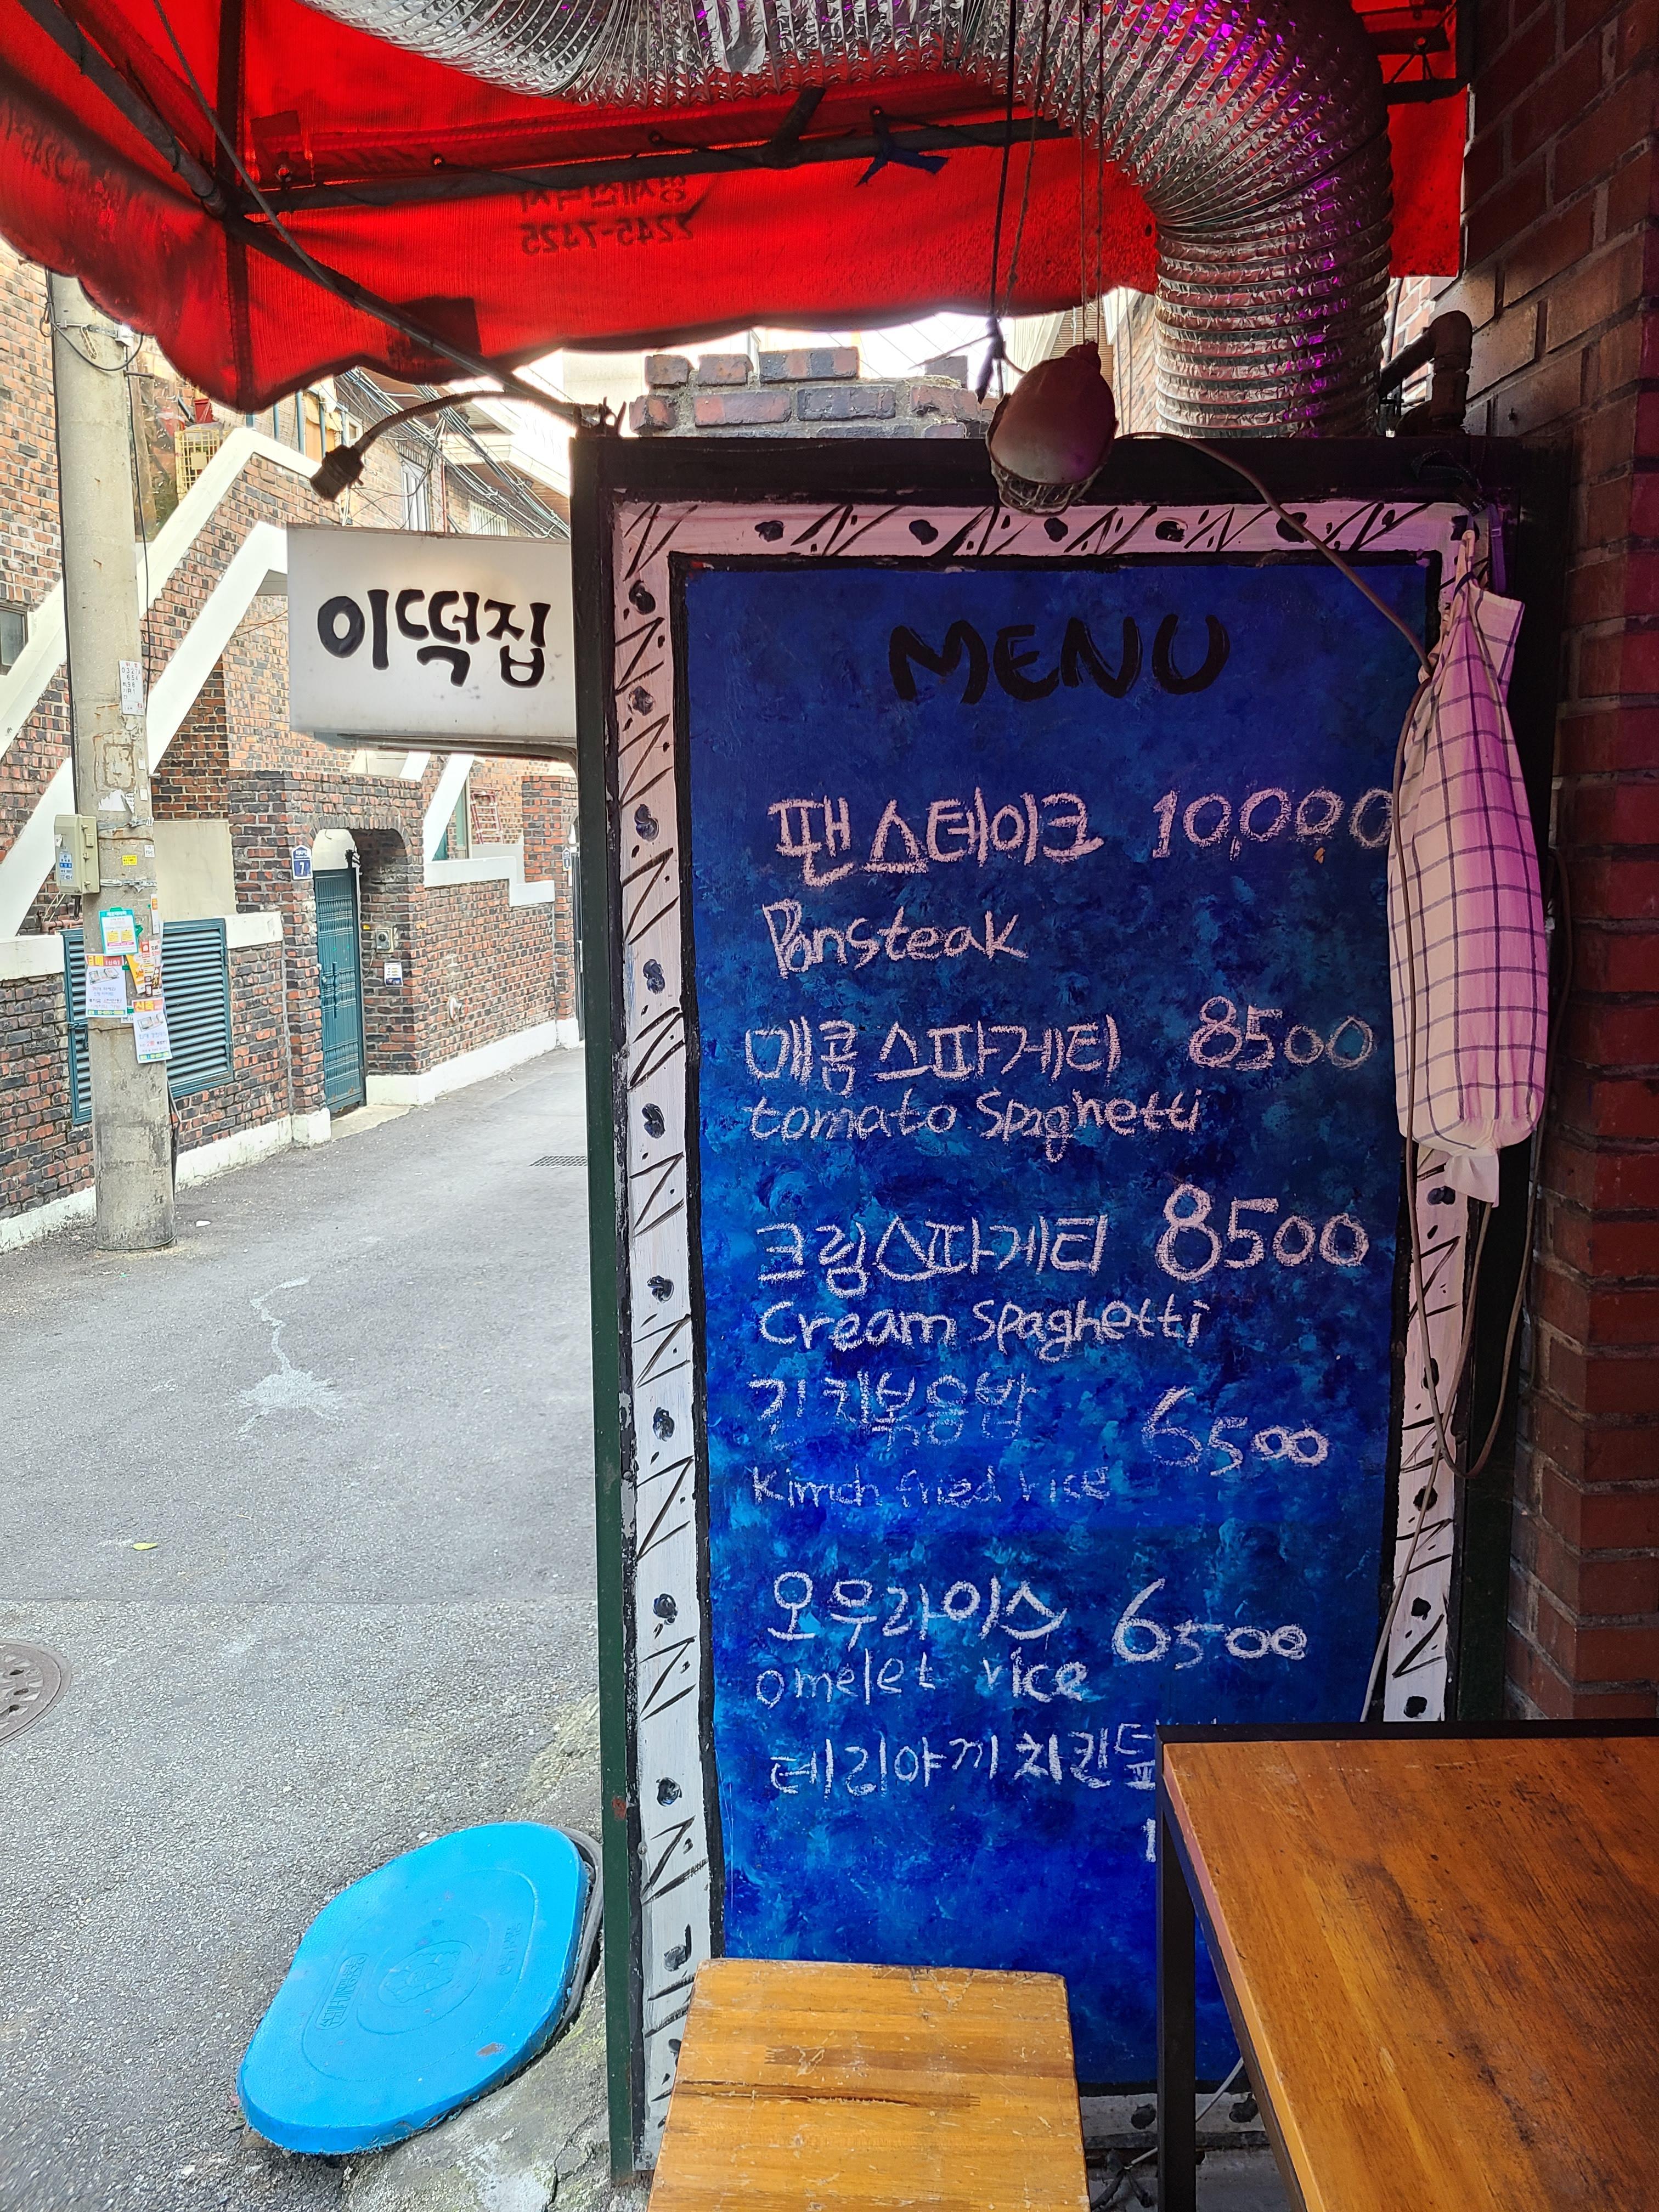 2245-7325
이떡집
MENU
팬스테이크 10,000
Pansteak
매콤스파게티 8500
tomato Spaghetti
크림스파게티 8500
Cream Spaghetti
김치볶음밥 6500
Kimch fried rice
오무라이스 6500
omelet rice
테리야끼치킨
7